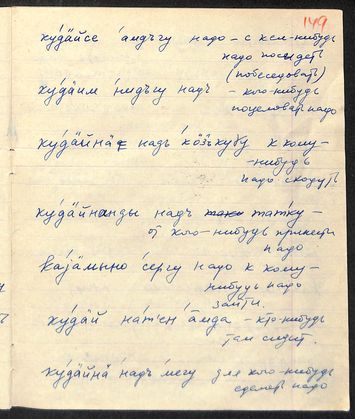 149
ку́дӓйсе а́мдъгу надо – с кем-нибудь
надо посидеть
(побеседовать)
ку́дӓим ни́дъгу надъ – кого-нибудь
поцеловать надо
ку́дӓйнӓ надъ кӧ̄ъкугу к кому-
-нибудь
надо сходить
ку́дӓйнанды надъ татку –
от кого-нибудь принести
надо
се́ргу надо к кому-
нибудь надо
зайти.
ку́дӓй на́тʼен а́мда – кто-нибудь
там сидит.
ку́дӓйнӓ надъ ме́гу для кого-нибудь
сделать надо